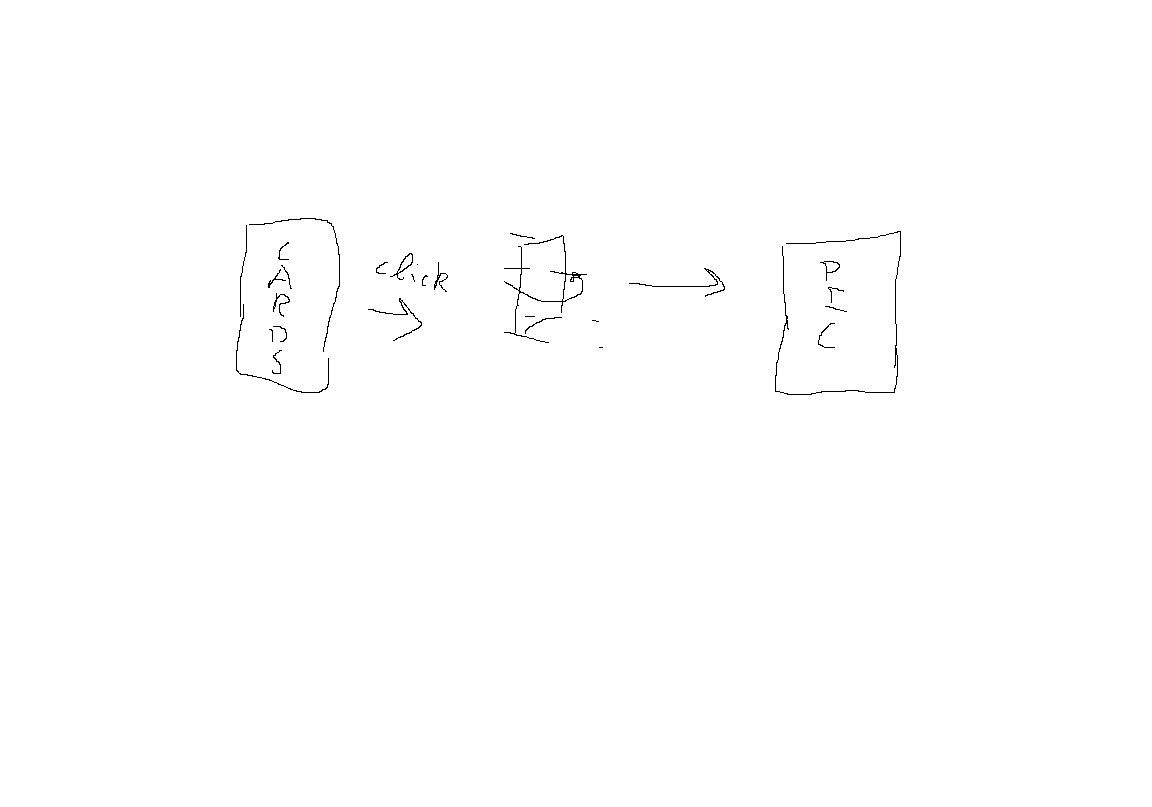 CARDS
click
PIC